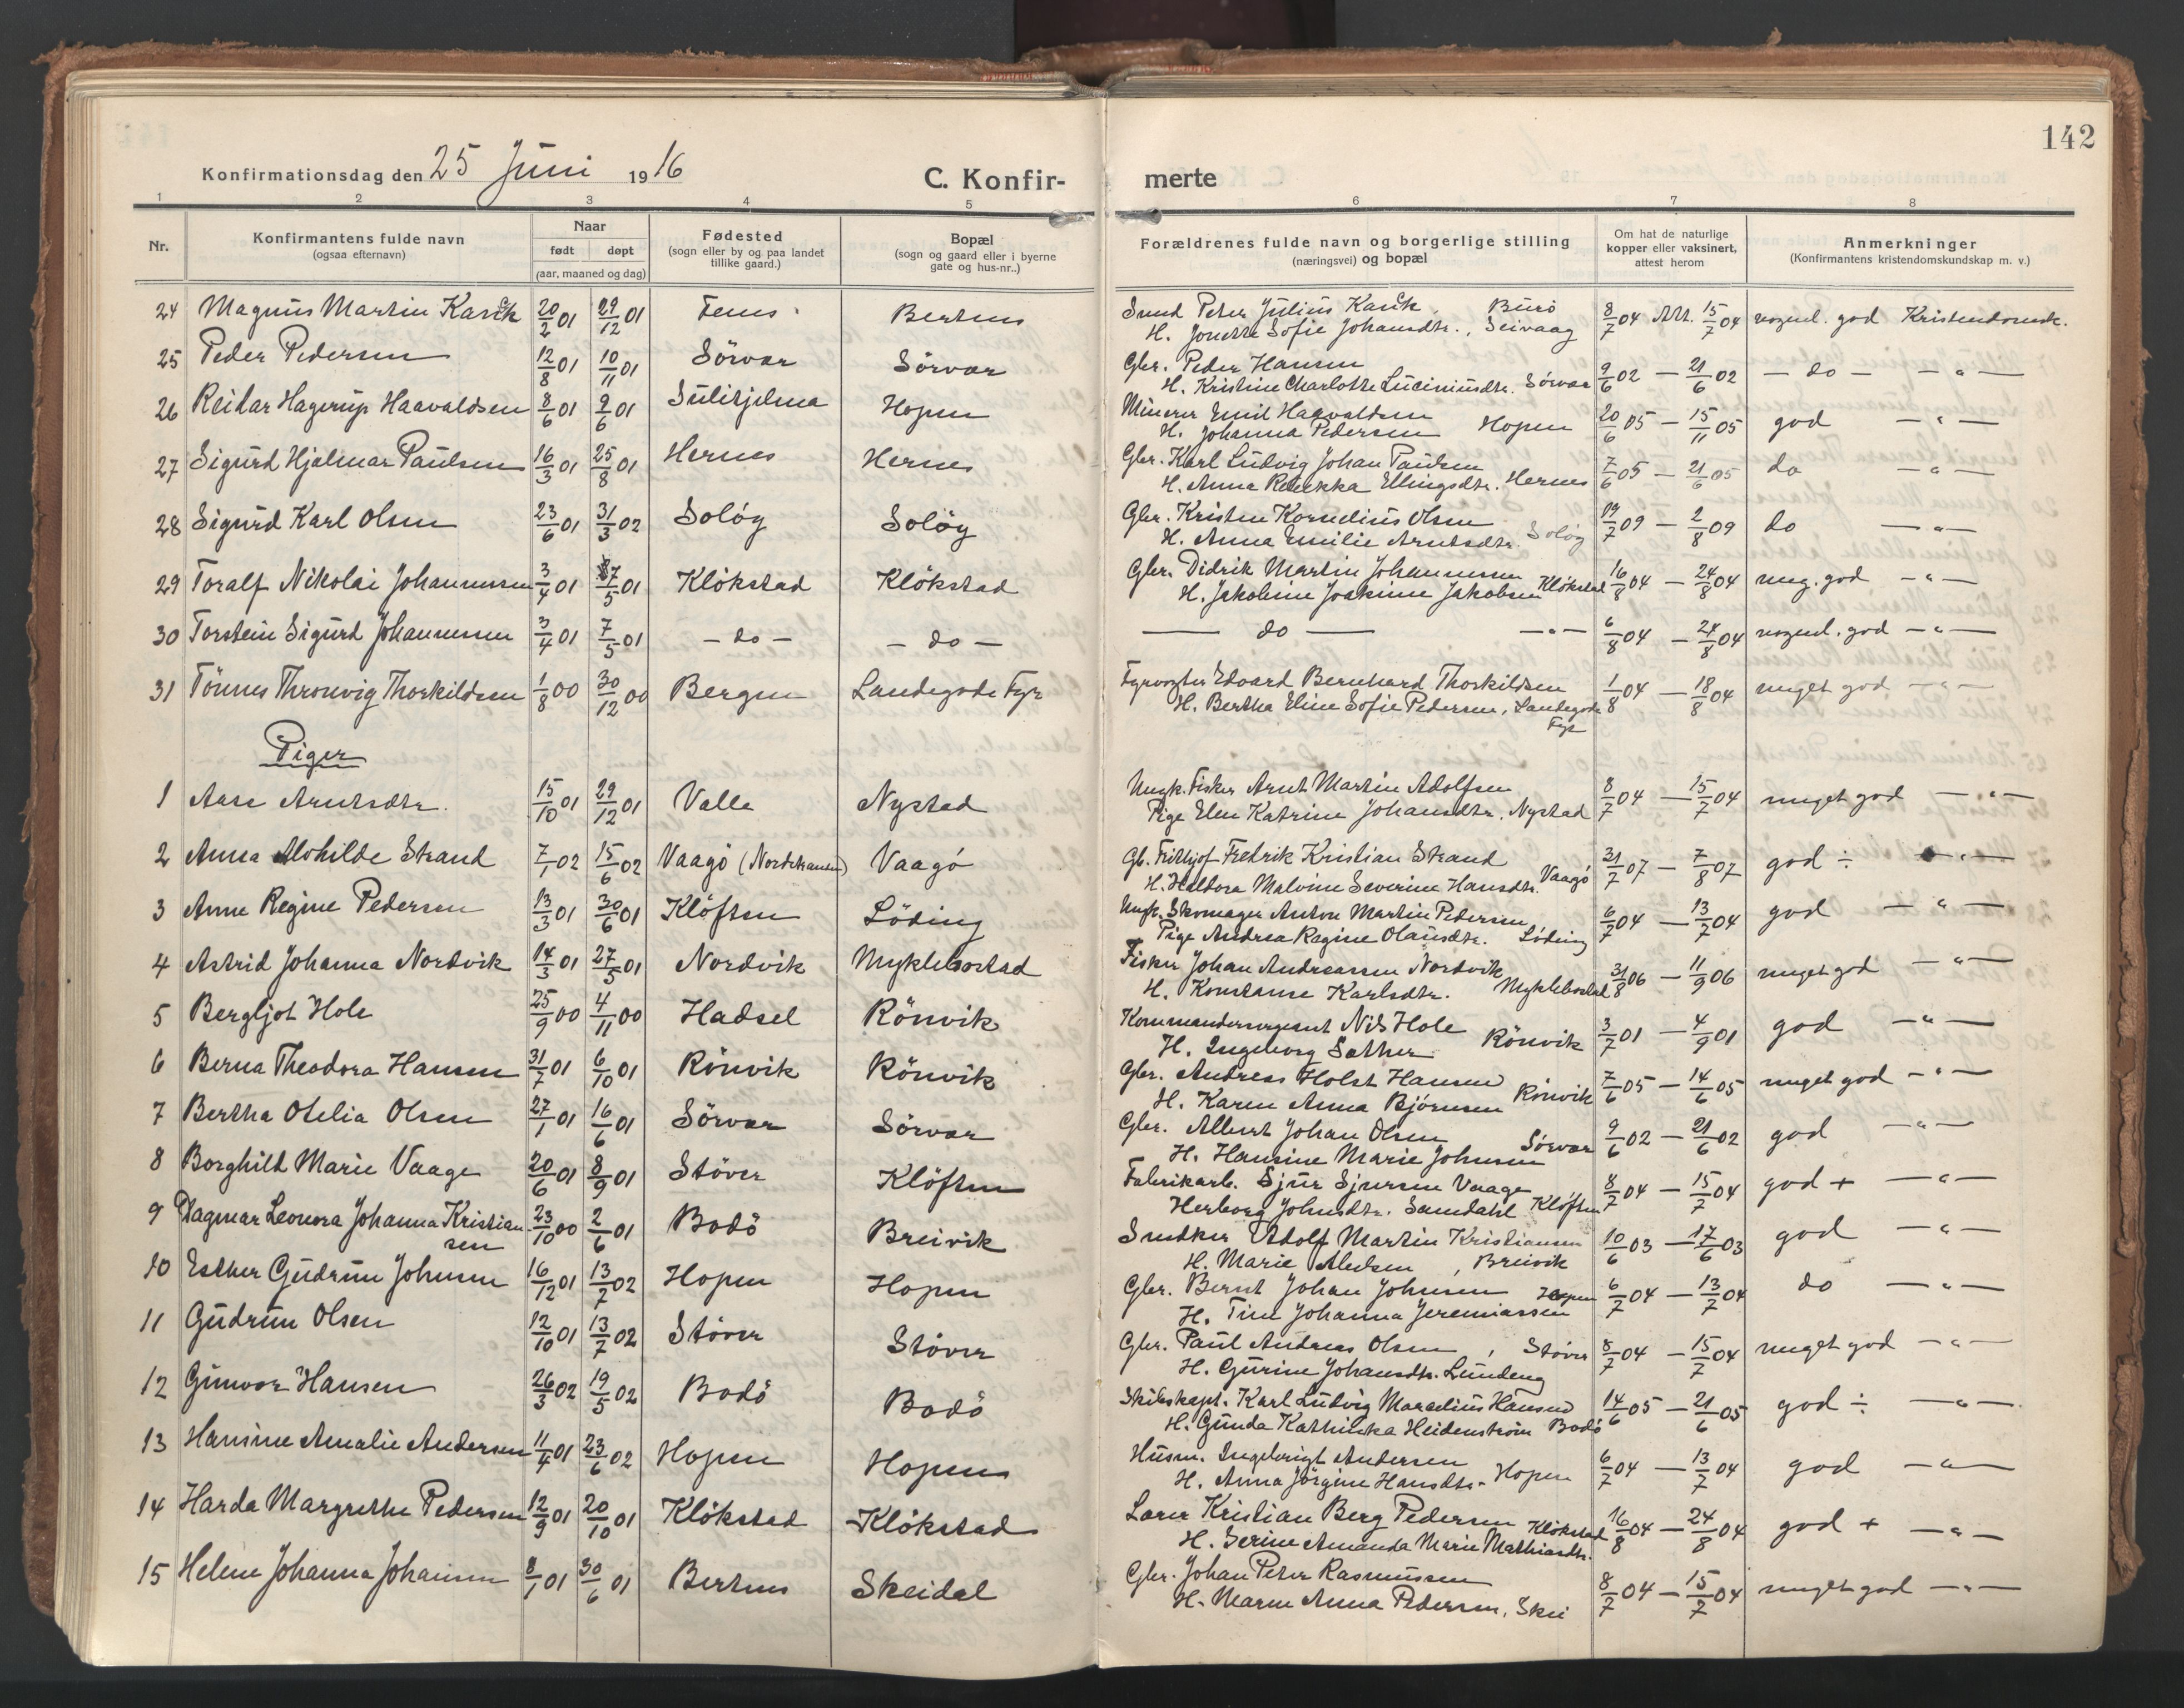 142
Konfirmationsdag den 25 Juni 1916
C. Konfirmerte
1 2 3 4 5 6 7 8
Nr. | Konfirmantens fulde navn (ogsaa efternavn) | Naar født døpt (aar, maaned og dag) | Fødested (sogn eller by og paa landet tillike gaard.) | Bopæl (sogn og gaard eller i byerne gate og hus-nr..) | Forældrenes fulde navn og borgerlige stilling (næringsvei) og bopæl | Om hat de naturlige kopper eller vaksinert, attest herom | Anmerkninger (Konfirmantens kristendomskundskap m. v.)
24 Magnus Martin Karck 20/2 01 29/12 01 Fenes Bertnes Smed Peter Julius Karck, Burö
H. Jonette Sofie Johansdtr., Seivaag 8/7 04 Att. 15/7 04 nogenl. god Kristendomsk.
25 Peder Pedersen 12/8 01 10/11 01 Sörvær Sörvær Gbr. Peder Hansen
H. Kristine Charlotte Luciniusdtr. Sörvær 9/6 02 — 21/6 02 — do — — " —
26 Reidar Hagerup Haavaldsen 8/6 01 9/6 01 Sulitjelma Hopen Minerer Emil Haavaldsen
H. Johanna Pedersen Hopen 20/6 05 — 15/11 05 god — " —
27 Sigurd Hjalmar Paulsen 16/3 01 25/8 01 Hernes Hernes Gbr. Karl Ludvig Johan Paulsen
H. Anna Rebekka Ellingsdtr. Hernes 7/6 05 — 21/6 05 do — " —
28 Sigurd Karl Olsen 23/6 01 31/3 02 Solöy Solöy Gbr. Kristen Kornelius Olsen
H. Anna Emilie Arntsdtr. Solöy 19/7 09 — 2/8 09 do — " —
29 Toralf Nikolai Johannessen 3/4 01 7/5 01 Klökstad Klökstad Gbr. Didrik Martin Johannessen
H. Jakobine Joakime Jakobsen Klökstad 16/8 04 — 24/8 04 meg. god — " —
30 Torstein Sigurd Johannessen 3/4 01 7/5 01 — do — — do — — do — — " — 6/8 04 — 24/8 04 nogenl. god — " —
31 Tönnes Thronvig Thorkildsen 1/8 00 30/12 00 Bergen Landegode Fyr Fyrvogter Edvard Bernhard Thorkildsen
H. Bertha Eline Sofie Pedersen, Landegode Fyr 1/8 04 — 18/8 04 meget god — " —
Piger
1 Aase Arntsdtr. 15/10 01 29/12 01 Valle Nystad Ungk. Fisker Arnt Martin Adolfsen
Pige Elen Katrine Johansdtr. Nystad 8/7 04 — 15/7 04 meget god — " —
2 Anna Alvhilde Strand 7/1 02 15/6 02 Vaagö (Nordstranden) Vaagö Gb. Frithjof Fredrik Kristian Strand
H. Haldora Malvine Severine Hansdtr. Vaagö 31/7 07 — 7/8 07 god ÷ — " —
3 Anne Regine Pedersen 13/3 01 30/6 01 Klöften Löding Ungk. Skomager Anton Martin Pedersen
Pige Andrea Regine Olausdtr. Löding 6/7 04 — 13/7 04 god — " —
4 Astrid Johanna Nordvik 14/3 01 27/5 01 Nordvik Myklebostad Fisker Johan Andreassen Nordvik
H. Konstanse Karlsdtr. Myklebostad 31/8 06 — 11/9 06 meget god — " —
5 Bergljot Hole 25/9 00 4/11 00 Hadsel Rönvik Kommandersergeant Nils Hole
H. Ingeborg Sæther Rönvik 3/7 01 — 4/9 01 god — " —
6 Berna Theodora Hansen 31/7 01 6/10 01 Rönvik Rönvik Gbr. Andreas Holst Hansen
H. Karen Anna Bjørnsen Rönvik 7/6 05 — 14/6 05 meget god — " —
7 Bertha Otelia Olsen 27/1 01 16/6 01 Sörvær Sörvær Gbr. Albert Johan Olsen
H. Hansine Marie Johnsen Sörvær 9/6 02 — 21/6 02 god — " —
8 Borghild Marie Vaage 20/6 01 8/9 01 Stöver Klöften Fabrikarb. Sjur Sjursen Vaage
Herborg Johnsdtr. Samdahl Klöften 8/7 04 — 15/7 04 god + — " —
9 Dagmar Leonora Johanna Kristiansen 23/10 00 2/6 01 Bodö Breivik Snedker Adolf Martin Kristiansen
H. Marie Aledsen, Breivik 10/6 03 — 17/6 03 god — " —
10 Esther Gudrun Johnsen 16/12 01 13/7 02 Hopen Hopen Gbr. Bernt Johan Johnsen Hopen
H. Tine Johanna Jeremiassen 6/7 04 — 13/7 04 do — " —
11 Gudrun Olsen 12/10 01 13/7 02 Stöver Stöver Gbr. Paul Andreas Olsen, Stöver
H. Gurine Johansdtr. Lundeng 8/7 04 — 15/7 04 meget god — " —
12 Gunvor Hansen 26/3 02 19/5 02 Bodö Bodö Skibskapt. Karl Ludvig Marcelius Hansen
H. Gunda Kathinka Heidenström Bodö 14/6 05 — 21/6 05 god ÷ — " —
13 Hansine Amalie Andersen 11/4 01 23/6 02 Hopen Hopen Husm. Ingebrigt Andersen
H. Anna Jörgine Hansdtr. Hopen 6/7 04 — 13/7 04 god — " —
14 Harda Margrethe Pedersen 12/9 01 20/10 01 Klökstad Klökstad Lærer Kristian Berg Pedersen Klökstad
H. Serine Amanda Marie Mathiasdtr. 16/8 04 — 24/8 04 god + — " —
15 Helene Johanna Johansen 8/1 01 30/6 01 Bertnes Skeidal Gbr. Johan Peter Rasmussen
H. Maren Anna Pedersen, Skei 8/7 04 — 15/7 04 meget god — " —